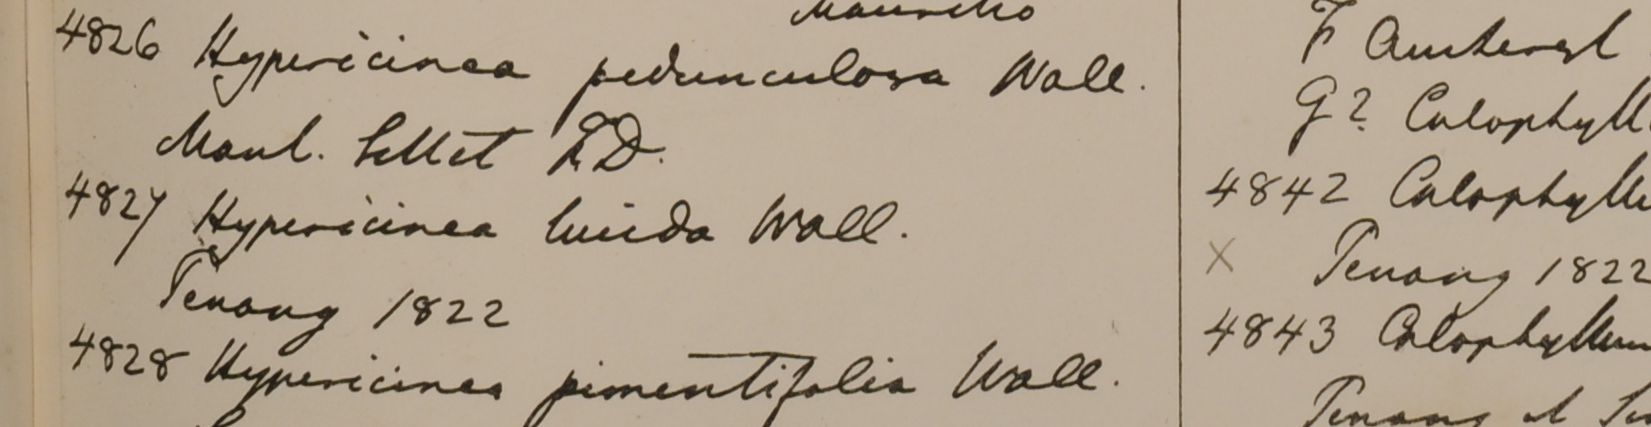 4826 Hypericinea pedunculosa Wall.
Maul. Settlet H.D.
4827 Hypericinea lucida Wall.
Penang 1822
4828 Hypericinea pimentifolia Wall.
F Amherst
G? Calophyll
4842 Calophyllu
X Penang 1822
4843 Calophyllum
Penang et